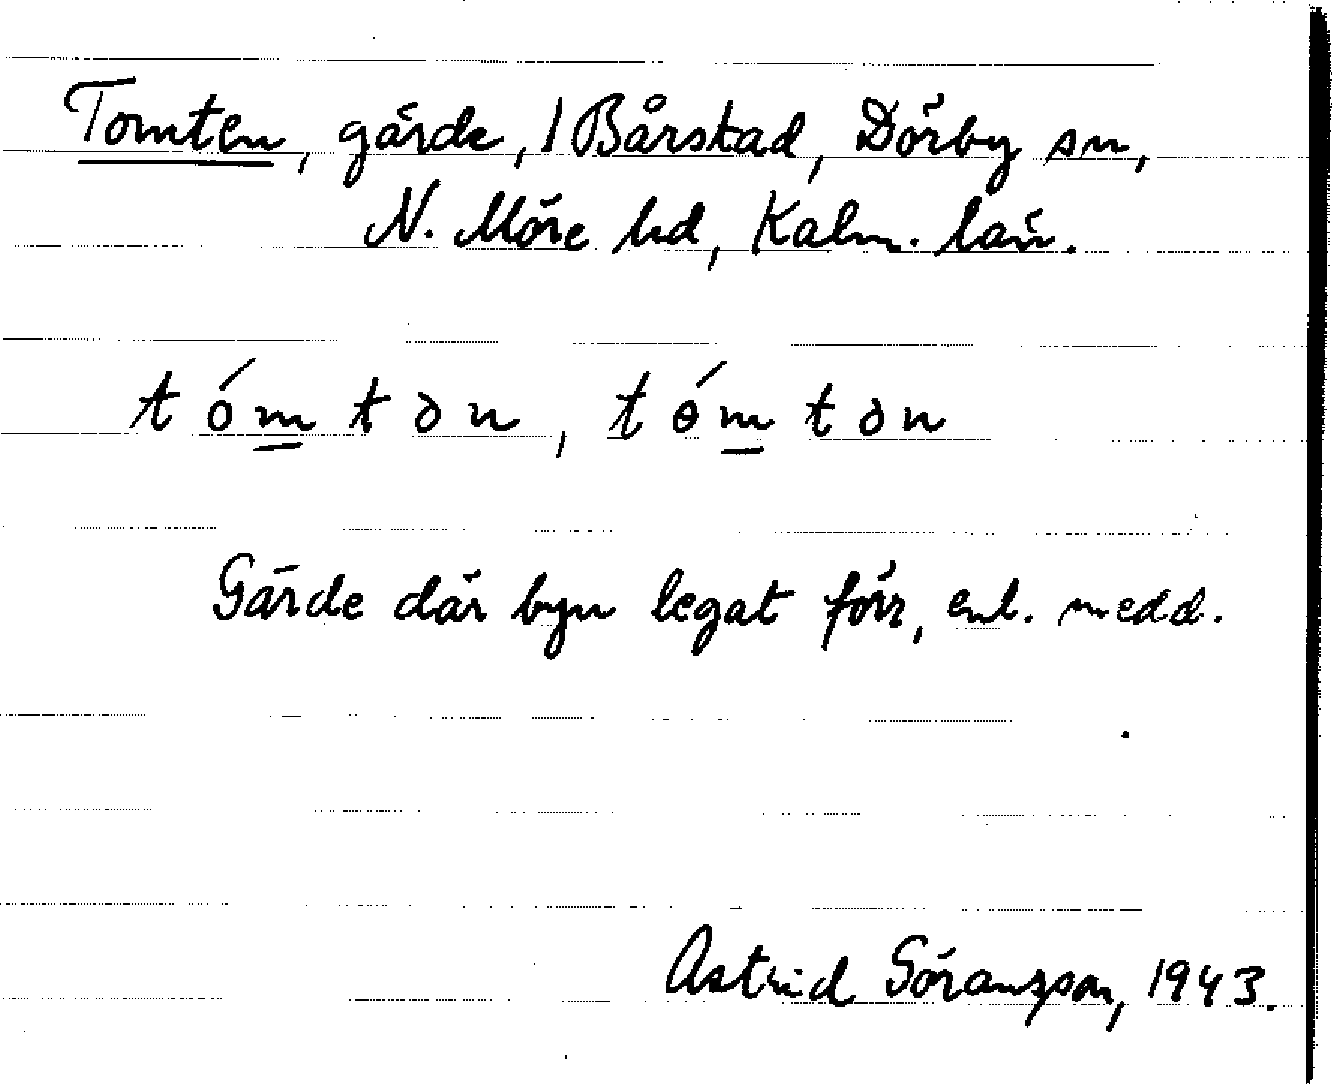 Tomten, gärde, i Bårstad, Dörby sn,
N. Möre hd, Kalm. län.
t ó m t ə n, t ɵ́ m t ə n
Gärde där byn legat förr, enl. medd.
Astrid Göranzson, 1943.